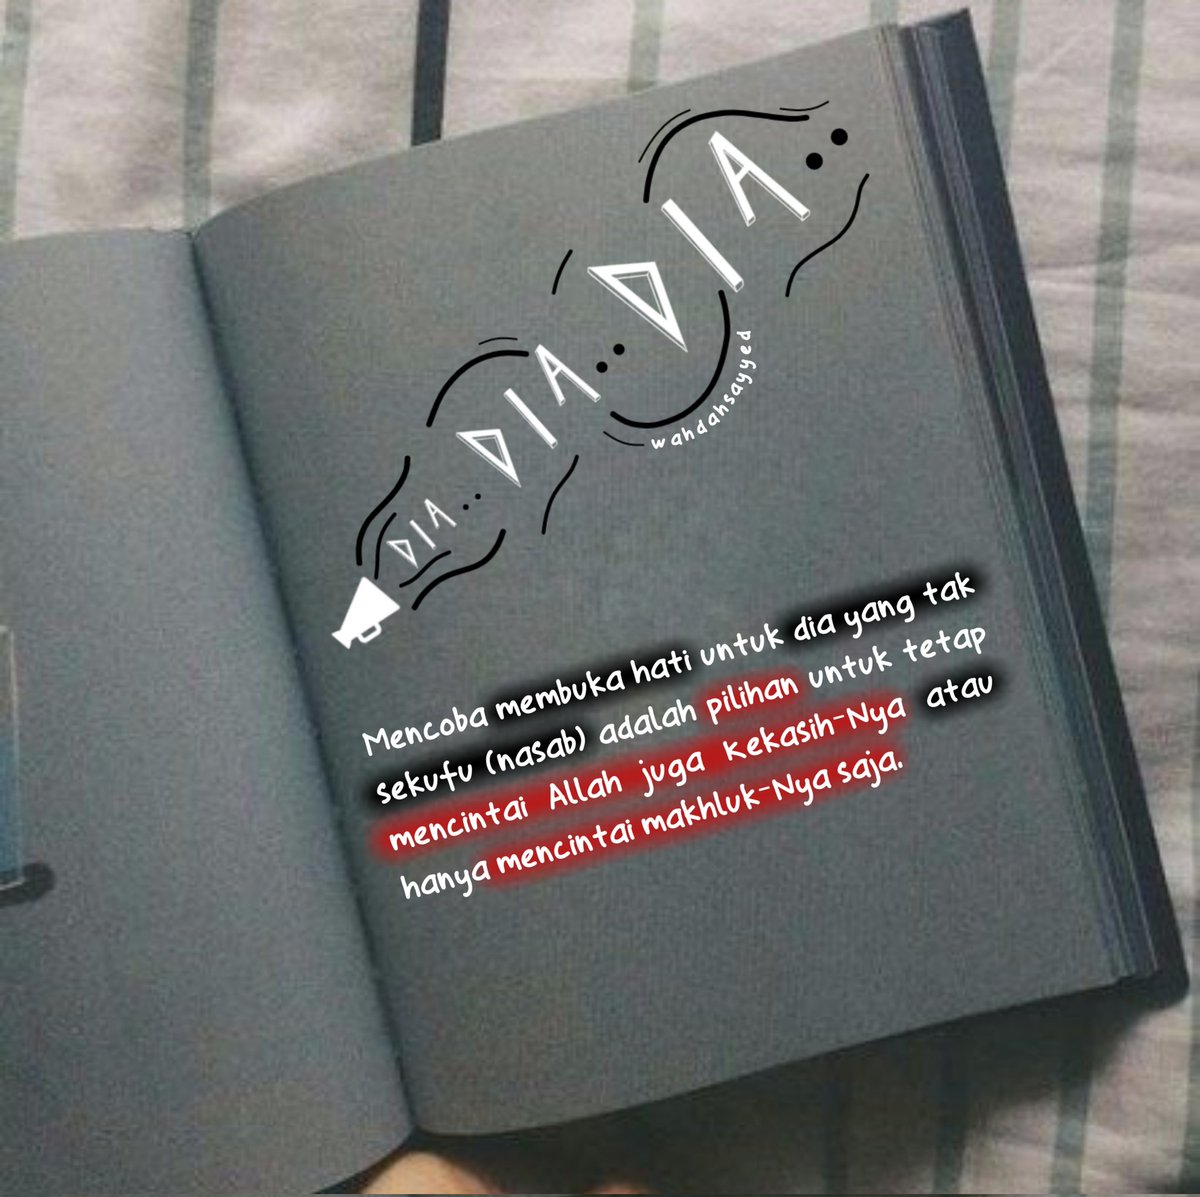 DIA..
DIA..
DIA..
wahdahsayyed
Mencoba membuka hati untuk dia yang tak
sekufu (nasab) adalah pilihan untuk tetap
mencintai Allah juga kekasih-Nya atau
hanya mencintai makhluk-Nya saja.